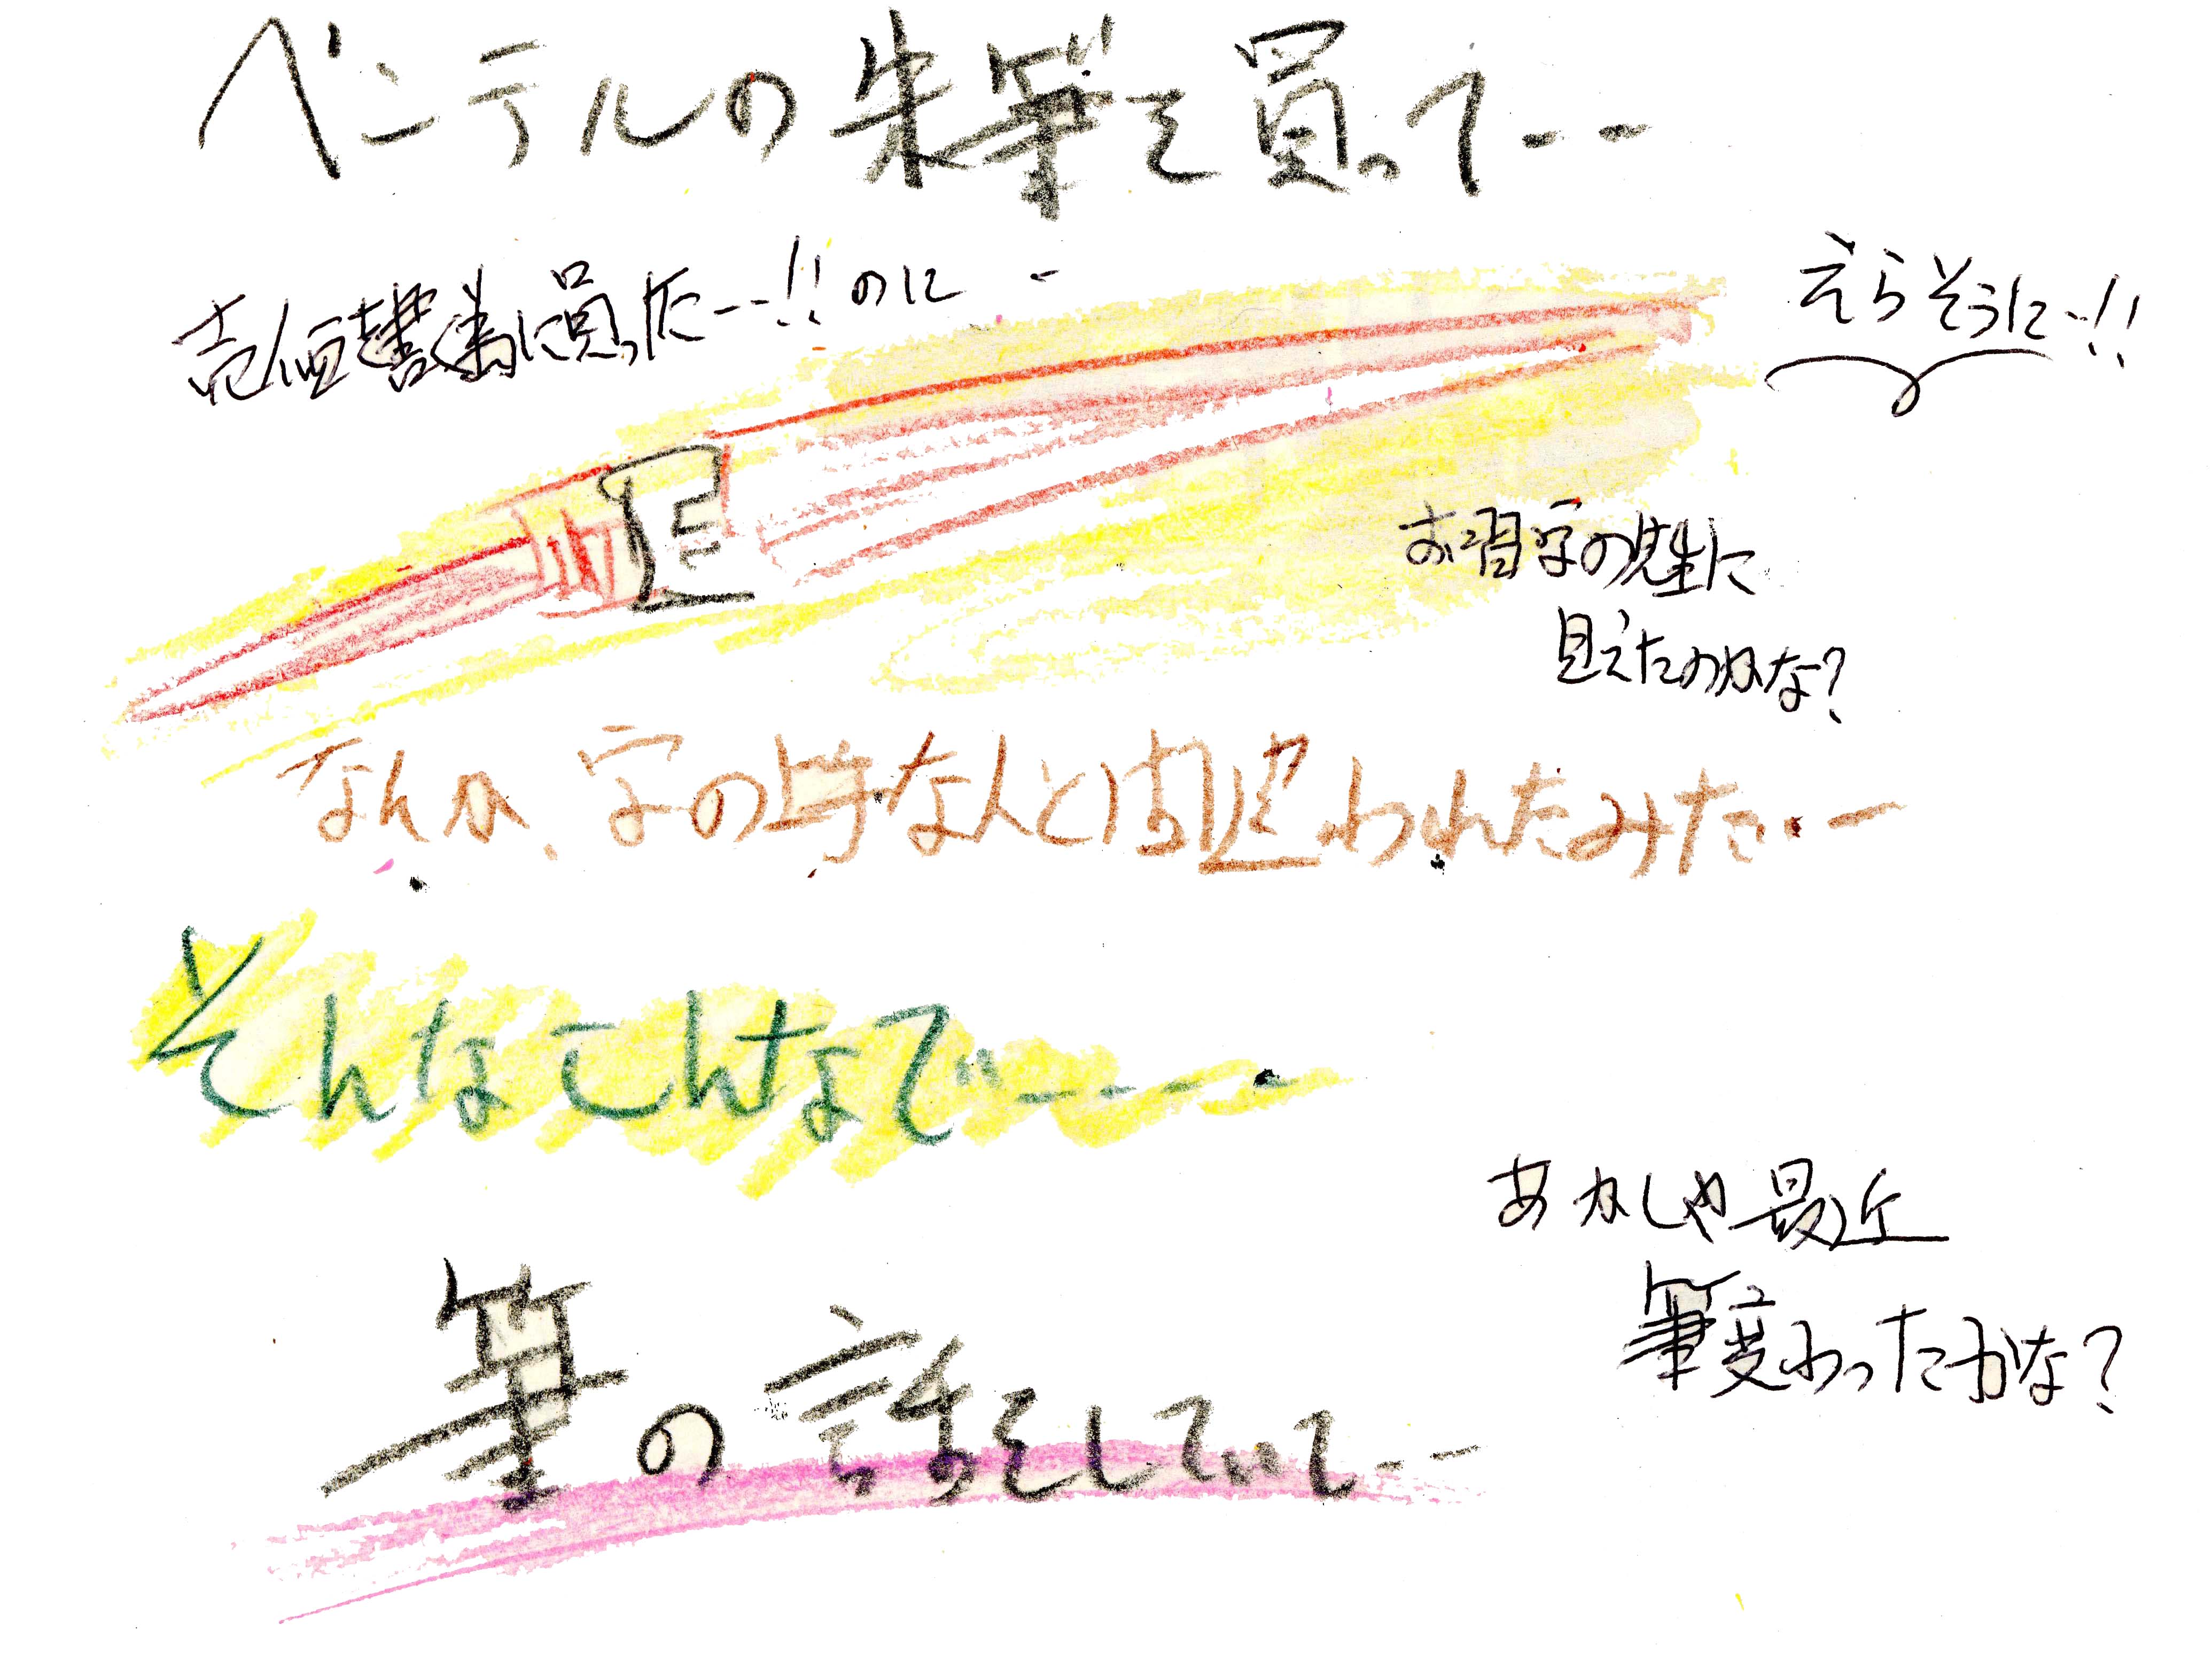 ペンテルの朱筆を買って---
に買った---!!のに--
えらそうに--!!
お習字の先生に
見えたのかな?
なんか、字の上手な人と間違われたみたい--
そんなこんなで----
あかしや最近
筆変わったかな?
筆の話をしていて---